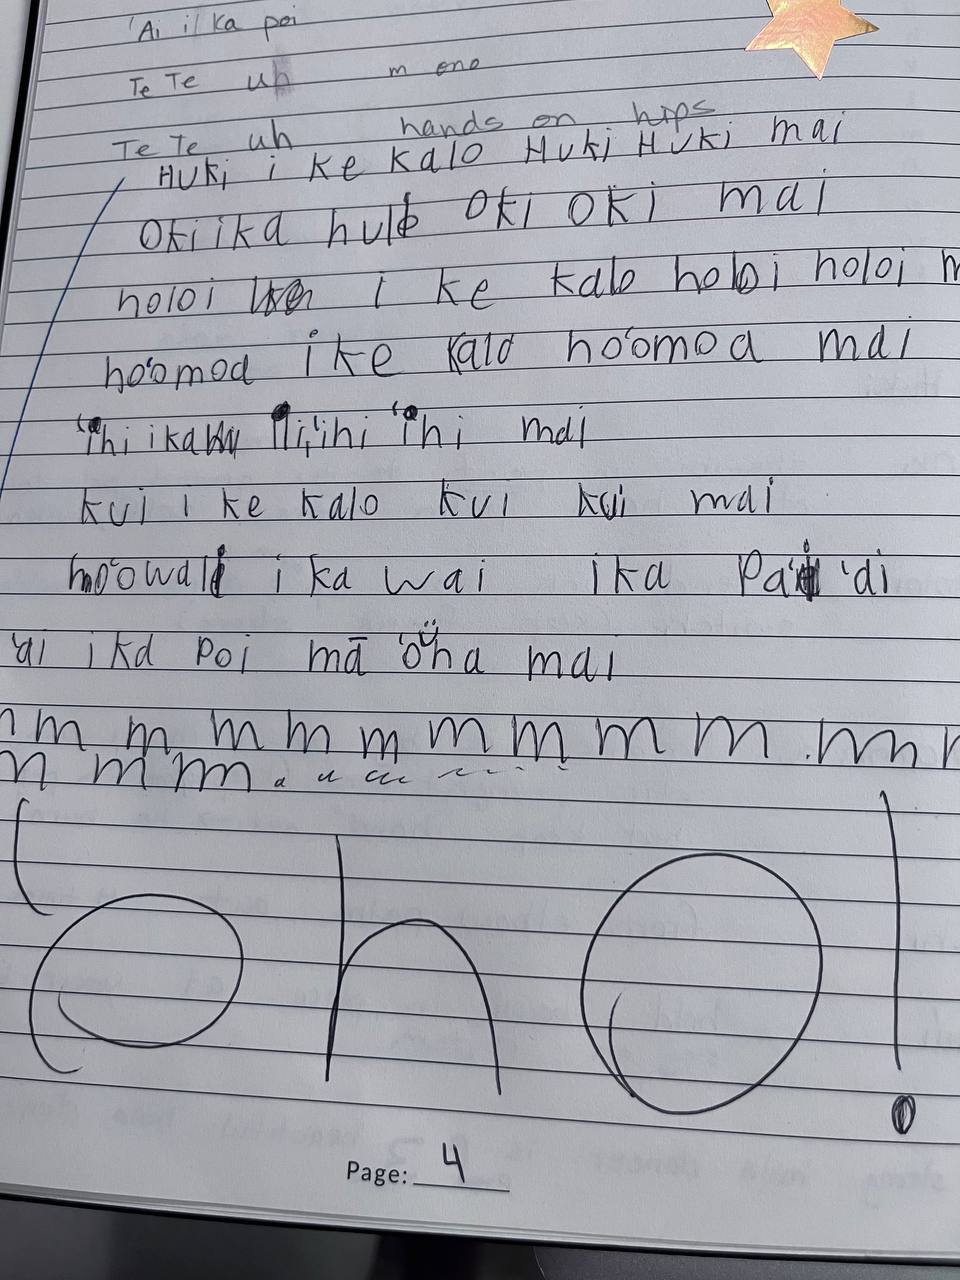 'Ai i ka poi
Te Te uh m ono
Te Te uh hands on hips
Huki i ke kalo Huki Huki mai
Oki i ka huli Oki Oki mai
holoi i ke kalo holoi holoi m
ho'omoa i ke kalo ho'omoa mai
'ihi i ka 'ili 'ihi 'ihi mai
kui i ke kalo kui kui mai
ho'owali i ka wai i ka Pa'i 'ai
'ai i ka poi mā 'ona mai
m m m m m m m m m m m
m m m.
'Oh O!
Page: 4